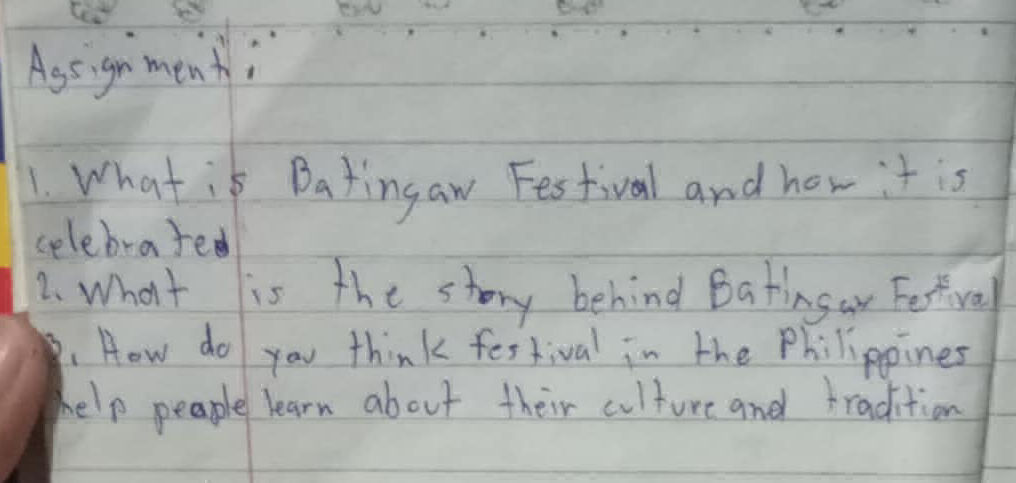 Assignment:
1. What is Batingaw Festival and how it is
celebrated
2. What is the story behind Batingaw Festival
3. How do you think festival in the Philippines
help people learn about their culture and tradition